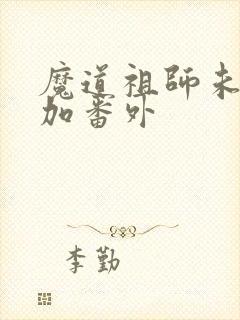 魔道祖师未
加番外
李勤